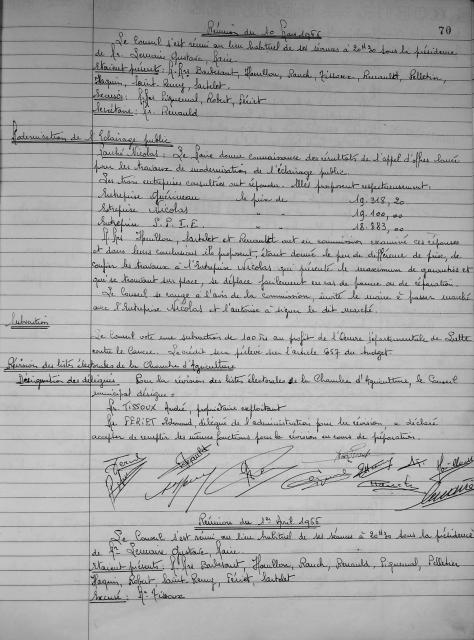 70
Réunion du 10 Mars 1966
Le Conseil s'est réuni au lieu habituel de ses séances à 20H30 sous la présidence
de Mr. Lemaire Gustave, Maire.
Etaient présents : M. Mrs Barbesant, Houillon, Rauch, Tissoux, Renauld, Pelletier,
Haquin, Saint-Remy, Sartelet.
Excusés : M. Mrs Piquemal, Robert, Fériet
Secrétaire : Mr. Renauld
Modernisation de l'Eclairage public
Marché Nicolas : Le Maire donne connaissance des résultats de l'appel d'offres lancé
pour les travaux de modernisation de l'éclairage public.
Les trois entreprises consultées ont répondu. Elles proposent respectivement :
Entreprise Guérineau le prix de 19.318,20
Entreprise Nicolas " " 19.100,00
Entreprise S.P.I.E. " " 18.883,00
M. Mrs Houillon, Sartelet et Renauld ont en commission examiné ces réponses
et dans leurs conclusions ils proposent, étant donné le peu de différence de prix, de
confier les travaux à l'Entreprise Nicolas qui présente le maximum de garanties et
qui se trouvant sur place, se déplace facilement en cas de panne ou de réparation.
Le Conseil se range à l'avis de la Commission, invite le maire à passer marché
avec l'Entreprise Nicolas et l'autorise à signer le dit marché.
Subvention
Le Conseil vote une subvention de 100 Frs au profit de l'Oeuvre départementale de Lutte
contre le Cancer. Le crédit sera prélevé sur l'article 657 du budget.
Révision des listes électorales de la Chambre d'Agriculture
Désignation des délégués. Pour la révision des listes électorales de la Chambre d'Agriculture, le Conseil
municipal désigne :
Mr TISSOUX André, propriétaire exploitant
Mr FERIET Edmond, délégué de l'administration pour la révision, a déclaré
accepter de remplir les mêmes fonctions pour la révision en cours de préparation.
Réunion du 1er Avril 1966
Le Conseil s'est réuni au lieu habituel de ses séances à 20H30 sous la présidence
de Mr Lemaire Gustave, Maire.
Etaient présents : M. Mrs Barbesant, Houillon, Rauch, Renauld, Piquemal, Pelletier
Haquin, Robert, Saint-Remy, Fériet, Sartelet
Excusé : Mr Tissoux